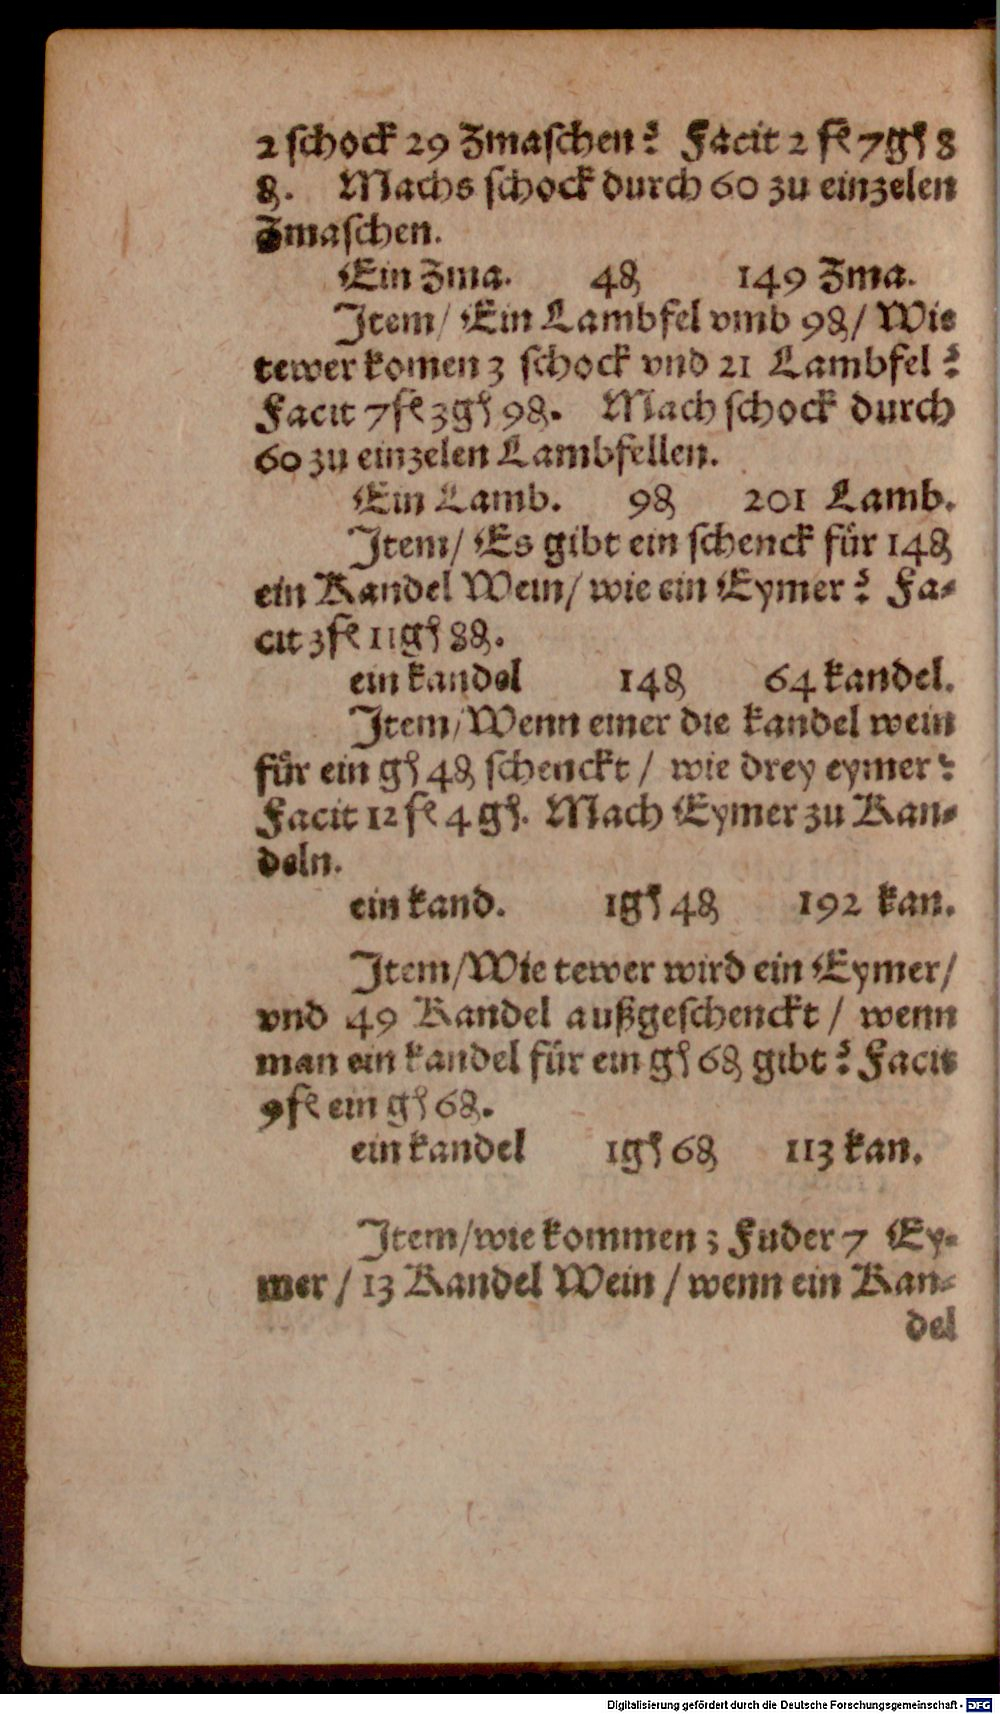 2 ſchock 29 Zmaſchen? Facit 2 fl 7 gſ 8
₰. Machs ſchock durch 60 zu einzelen
Zmaſchen.
Ein Zma. 4 ₰ 149 Zma.
Item/ Ein Lambfel vmb 9 ₰/ Wie
tewer komen 3 ſchock vnd 21 Lambfel?
Facit 7 fl 3 gſ 9 ₰. Mach ſchock durch
60 zu einzelen Lambfellen.
Ein Lamb. 9 ₰ 201 Lamb.
Item/ Es gibt ein ſchenck fuͤr 14 ₰
ein Kandel Wein/ wie ein Eymer? Fa-
cit 3 fl 11 gſ 8 ₰.
ein kandel 14 ₰ 64 kandel.
Item/ Wenn einer die kandel wein
fuͤr ein gſ 4 ₰ ſchenckt/ wie drey eymer?
Facit 12 fl 4 gſ. Mach Eymer zu Kan-
deln.
ein kand. 1 gſ 4 ₰ 192 kan.
Item/ Wie tewer wird ein Eymer/
vnd 49 Kandel außgeſchenckt/ wenn
man ein kandel fuͤr ein gſ 6 ₰ gibt? Facit
9 fl ein gſ 6 ₰.
ein kandel 1 gſ 6 ₰ 113 kan.
Item/ wie kommen 3 Fuder 7 Ey-
mer/ 13 Kandel Wein/ wenn ein Kan-
del
Digitalisierung gefördert durch die Deutsche Forschungsgemeinschaft - DFG